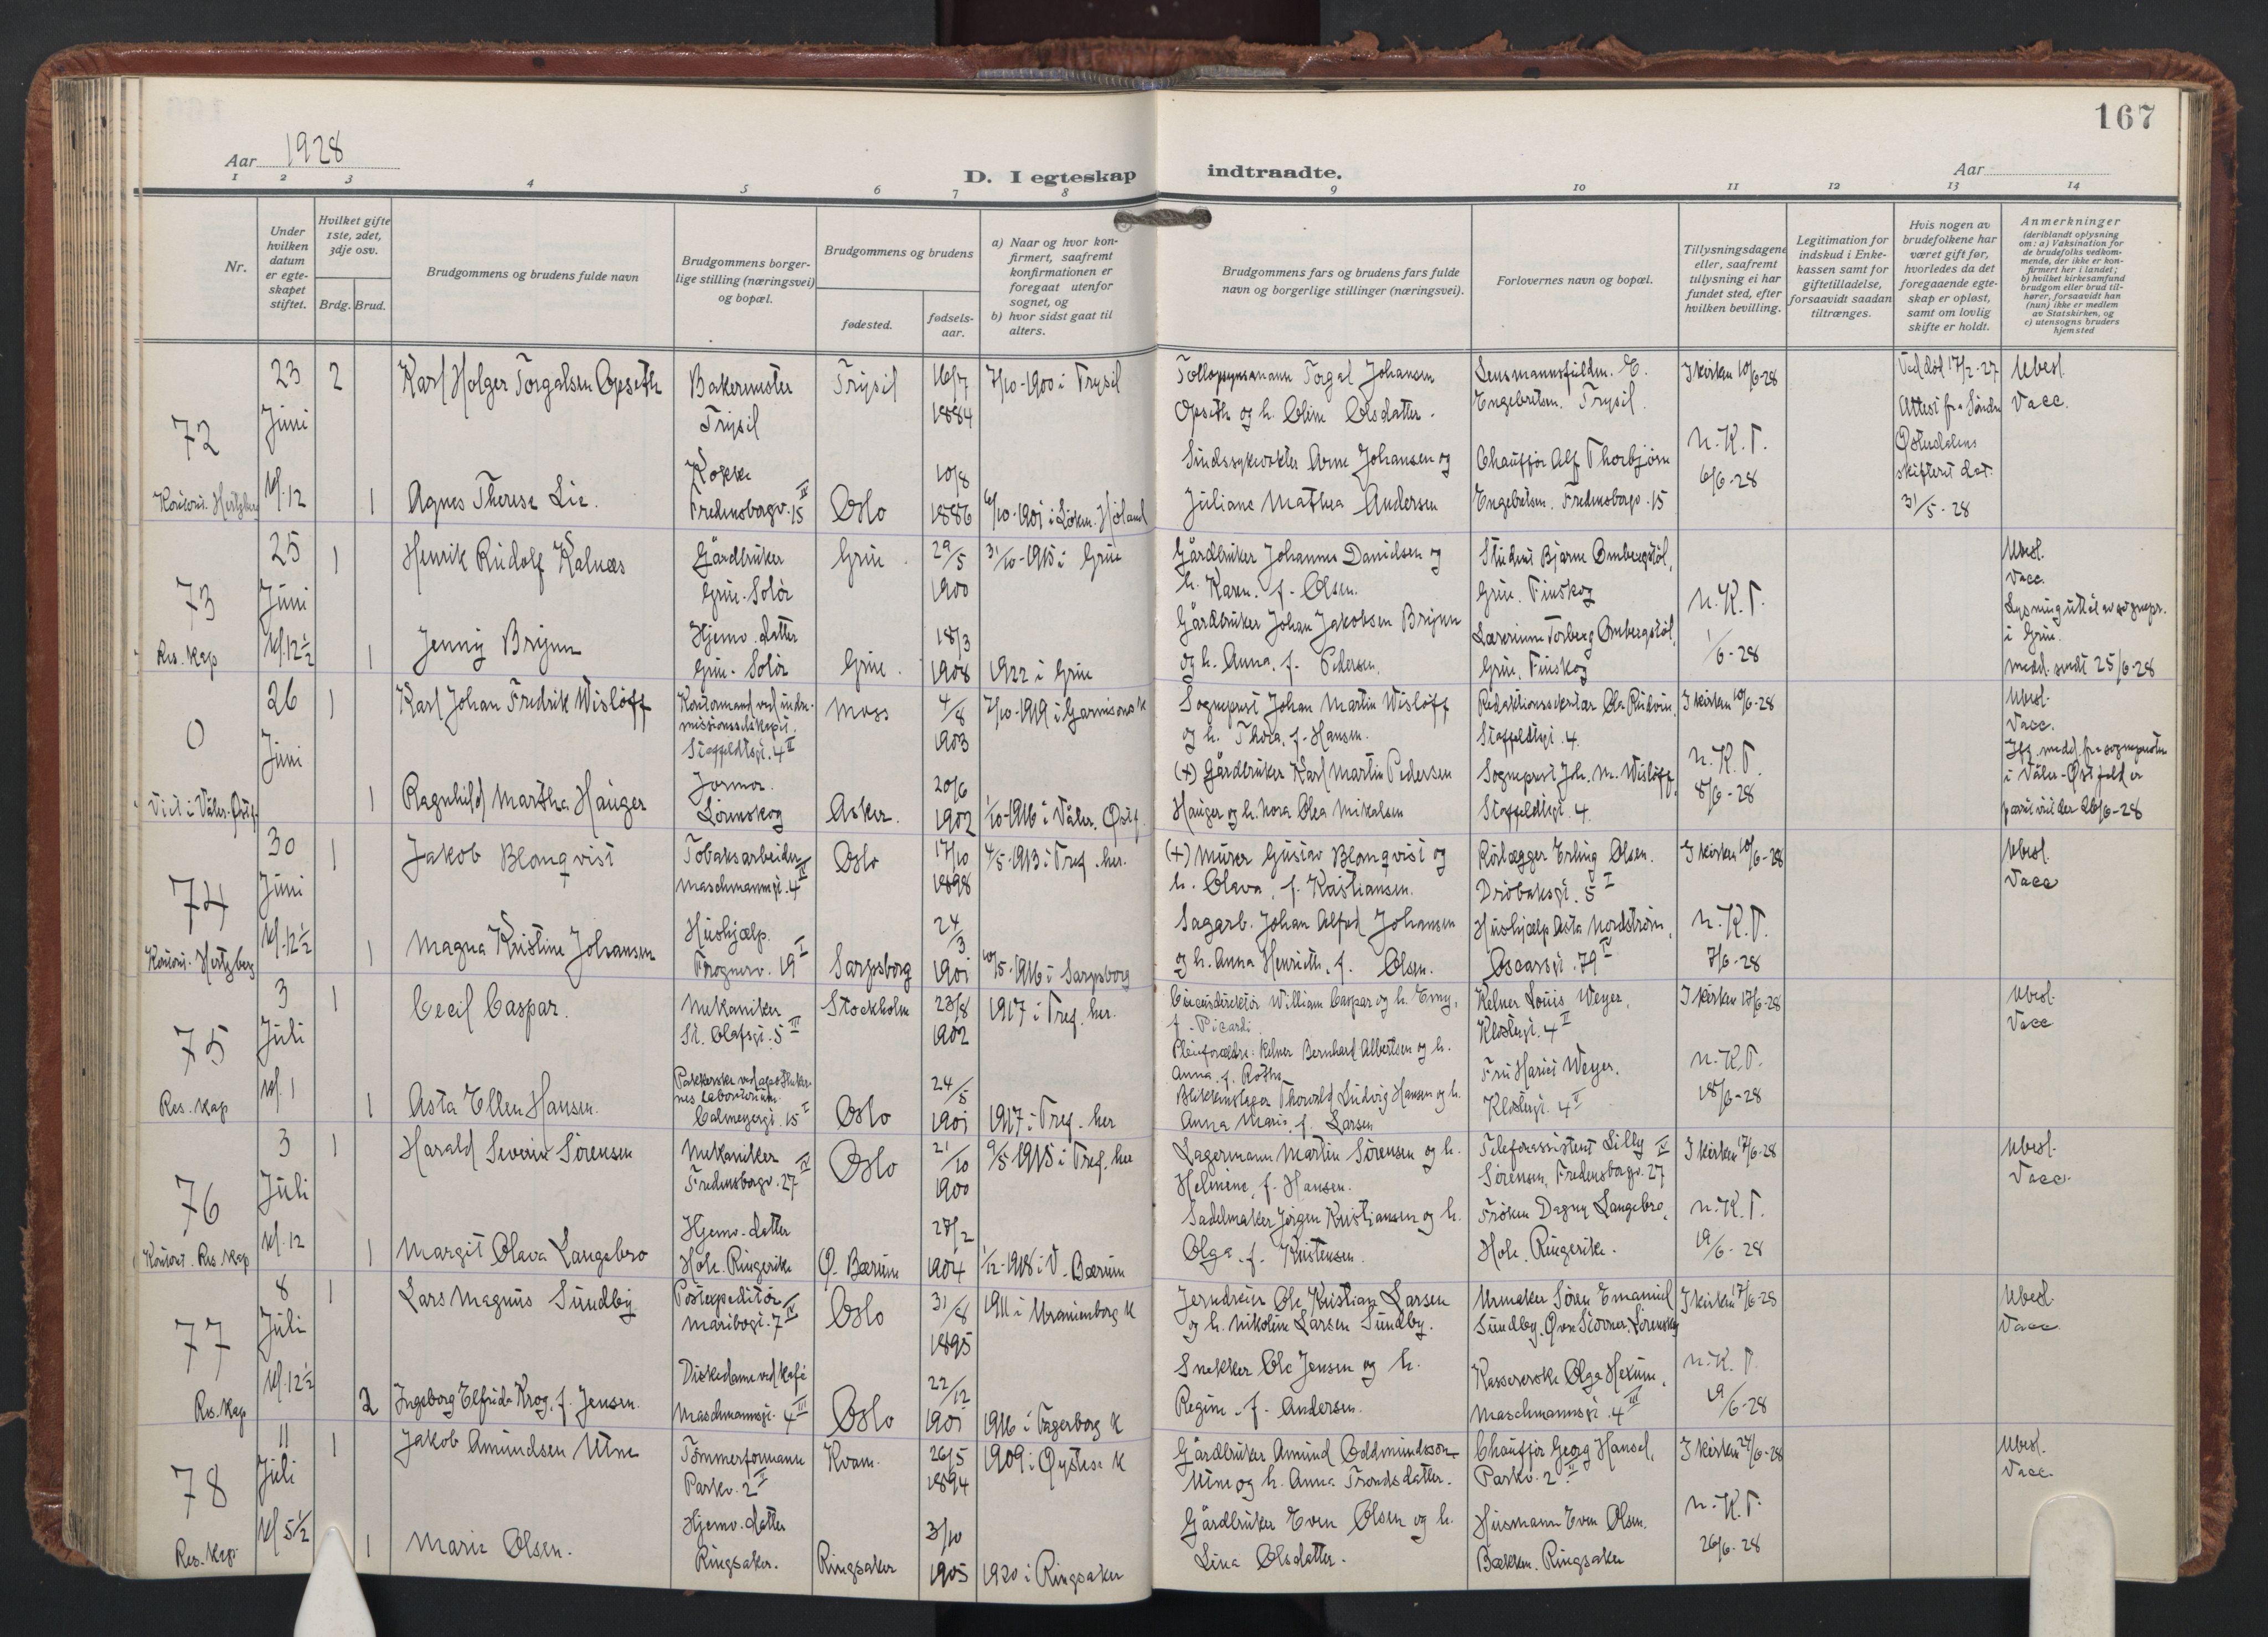 167
Aar 1928
D. I egteskap indtraadte.
Aar
1 2 3 4 5 6 7 8 9 10 11 12 13 14
Nr.
Under hvilken datum er egteskapet stiftet.
Hvilket gifte 1ste, 2det, 3dje osv.
Brdg. Brud.
Brudgommens og brudens fulde navn
Brudgommens borgerlige stilling (næringsvei) og bopæl.
Brudgommens og brudens
fødested.
fødselsaar.
a) Naar og hvor konfirmert, saafremt konfirmationen er foregaat utenfor sognet, og
b) hvor sidst gaat til alters.
Brudgommens fars og brudens fars fulde navn og borgerlige stillinger (næringsvei).
Forlovernes navn og bopæl.
Tillysningsdagene eller, saafremt tillysning ei har fundet sted, efter hvilken bevilling.
Legitimation for indskud i Enkekassen samt for giftetilladelse, forsaavidt saadan tiltrænges.
Hvis nogen av brudefolkene har været gift før, hvorledes da det foregaaende egteskap er opløst, samt om lovlig skifte er holdt.
Anmerkninger
(deriblandt oplysning om: a) Vaksination for de brudefolks vedkommende, der ikke er konfirmert her i landet; b) hvilket kirkesamfund brudgom eller brud tilhører, forsaavidt han (hun) ikke er medlem av Statskirken, og c) utensogns bruders hjemsted
72
23 Juni kl. 12
2
Karl Holger Torgalsen Opseth
Bakermester
Trysil
Trysil
16/7 1884
7/10-1900 i Trysil
Torgal Johansen
Opseth og h. Oline Olsdatter.
Lensmannsfuldm. E.
Engebretsen. Trysil.
I kirken 10/6-28
Ved død 17/2-27
Attest fra Søndre
Østerdalens
skifteret dat.
31/5-28
Ubesl.
Vacc.
1
Agnes Therese Lie.
Kokke
Fredensborgv. 15 IV
Oslo
10/8 1886
6/10-1901 i Løken. Høland
Sindssykevokter Arne Johansen og
Juliane Mathea Andersen
Chauffør Alf Thorbjørn
Engebretsen. Fredensborgv. 15
N.K.T.
6/6-28
73
25 Juni kl. 12½
Res. kap
1
Henrik Rudolf Kalnæs
Gårdbruker
Grue. Solør
Grue.
29/5 1900
31/10-1915 i Grue
Gårdbruker Johannes Danielsen og
h. Karen. f. Olsen.
Student Bjarne Ombergstøl,
Grue. Finskog
N.K.T.
1/6-28
Ubesl.
Vacc.
i Grue.
medd. sendt 25/6-28
1
Jenny Brynn
Hjemv. datter
Grue. Solør
Grue.
18/3 1908
1922 i Grue
Gårdbruker Johan Jakobsen Brynn
og h. Anna, f. Pedersen.
Lærerinne Torberg Ombergstøl,
Grue, Finskog
0
26 Juni
Viet i Våler. Østf.
1
Karl Johan Fredrik Wisløff
Kontormand ved indremissionsselskapet.
Staffeldtsgt. 4 II
Moss
4/8 1903
7/10-1919 i Garnisons K
Sogneprest Johan Martin Wisløff
og h. Thora, f. Hansen.
Redaktionssekretær Ola Rudvin,
Staffeldtsgt. 4.
I kirken 10/6-28
N.K.T.
8/6-28
Ubesl.
Vacc.
Iflg. medd. fra sognepresten
i Våler-Østfold er
paret viet der 26/6-28
1
Ragnhild Martha Hauger
Jormor.
Lørenskog
Asker.
20/6 1902
1/10-1916 i Våler. Østf.
(+) Gårdbruker Karl Martin Pedersen
Hauger og h. Nora Olea Mikalsen
Sogneprest Joh. M. Wisløff,
Staffeldtsgt. 4.
74
30 Juni kl. 12½
Kontort. Hertzberg
1
Jakob Blomqvist
Tobaksarbeider
Maschmannsgt. 4 IV
Oslo
17/10 1898
4/5-1913 i Tref. her.
(+) Murer Gustav Blomqvist og
h. Olava, f. Kristiansen.
Rørlægger Erling Olsen.
Drøbaksgt. 5 I
I kirken 10/6-28
N.K.T.
7/6-28
Ubesl.
Vacc
1
Magna Kristine Johansen
Hushjælp.
Frognerv. 19 I
Sarpsborg
24/3 1901
10/5-1916 i Sarpsborg
Sagarb. Johan Alfred Johansen
og h. Anna Henriette, f. Olsen.
Hushjælp Asta Nordstrøm,
Oscarsgt. 79 IV
75
3 Juli kl. 1
Res. kap
1
Cecil Caspar.
Mekaniker
St. Olafsgt. 5 III
Stockholm
23/8 1902
1917 i Tref. her.
Circusdirektør William Caspar og h. Emy,
f. Picardi.
Pleieforældre: Kelner Bernhard Albertsen og h.
Anna, f. Rothe
Kelner Louis Weyer,
Klostergt. 4 II
I kirken 17/6-28
N.K.T.
18/6-28
Ubesl.
Vacc
1
Asta Ellen Hansen.
Pakkerske ved apothekernes laboratorium.
Calmeyergt. 15 I
Oslo
24/5 1901
1917 i Tref. her
Blikkenslager Thorvald Ludvig Hansen og h.
Anna Marie, f. Larsen
Fru Harriet Weyer.
Klostergt. 4 II
76
3 Juli kl. 12
Kontort. Res. kap
1
Harald Severin Sørensen
Mekaniker
Fredensborgv. 27 IV
Oslo
21/10 1900
9/5-1915 i Tref. her
Lagermann Martin Sørensen og h.
Helmine, f. Hansen.
Telefonassistent Lilly
Sørensen, Fredensborgv. 27 IV
I kirken 17/6-28
N.K.T.
19/6-28
Ubesl.
Vacc.
1
Margit Olava Langebro
Hjemv. datter
Hole. Ringerike
Ø. Bærum
27/2 1904
1/12-1918 i V. Bærum
Sadelmaker Jørgen Kristiansen og h.
Olga, f. Kristensen.
Frøken Dagny Langebro,
Hole. Ringerike.
77
8 Juli kl. 12½
Res. kap
1
Lars Magnus Sundby
Postexpeditør
Maribogt. 7 IV
Oslo
31/8 1895
1911 i Uranienborg K
Jerndreier Ole Kristian Larsen
og h. Nikoline Larsen Sundby.
Urmaker Søren Emanuel
Sundby, Øvre Lørenskog
I kirken 17/6-28
N.K.T.
19/6-28
Ubesl.
Vacc.
2
Ingeborg Elfrida Krog, f. Jensen.
Diskedame ved kafé
Maschmannsgt. 4 III
Oslo
22/12 1901
1916 i Fagerborg K
Snekker Ole Jensen og h.
Regine, f. Andersen.
Kassererske Olga Hexum,
Maschmannsgt. 4 III
78
11 Juli kl 5½
Res. kap.
1
Jakob Amundsen Utne
Tømmerformann
Parkv. 2 II
Kvam.
26/5 1894
1909 i Øystese K
Gårdbruker Amund Oddmundsson
Utne og h. Anna Trondsdatter.
Chauffør Georg Hansen,
Parkv. 2 II
I kirken 24/6-28
N.K.T.
26/6-28
Ubesl.
Vacc.
1
Marie Olsen.
Hjemv. datter
Ringsaker.
Ringsaker
3/10 1905
1920 i Ringsaker
Gårdbruker Even Olsen og h.
Lina Olsdatter.
Husmann Even Olsen,
Bækken. Ringsaker